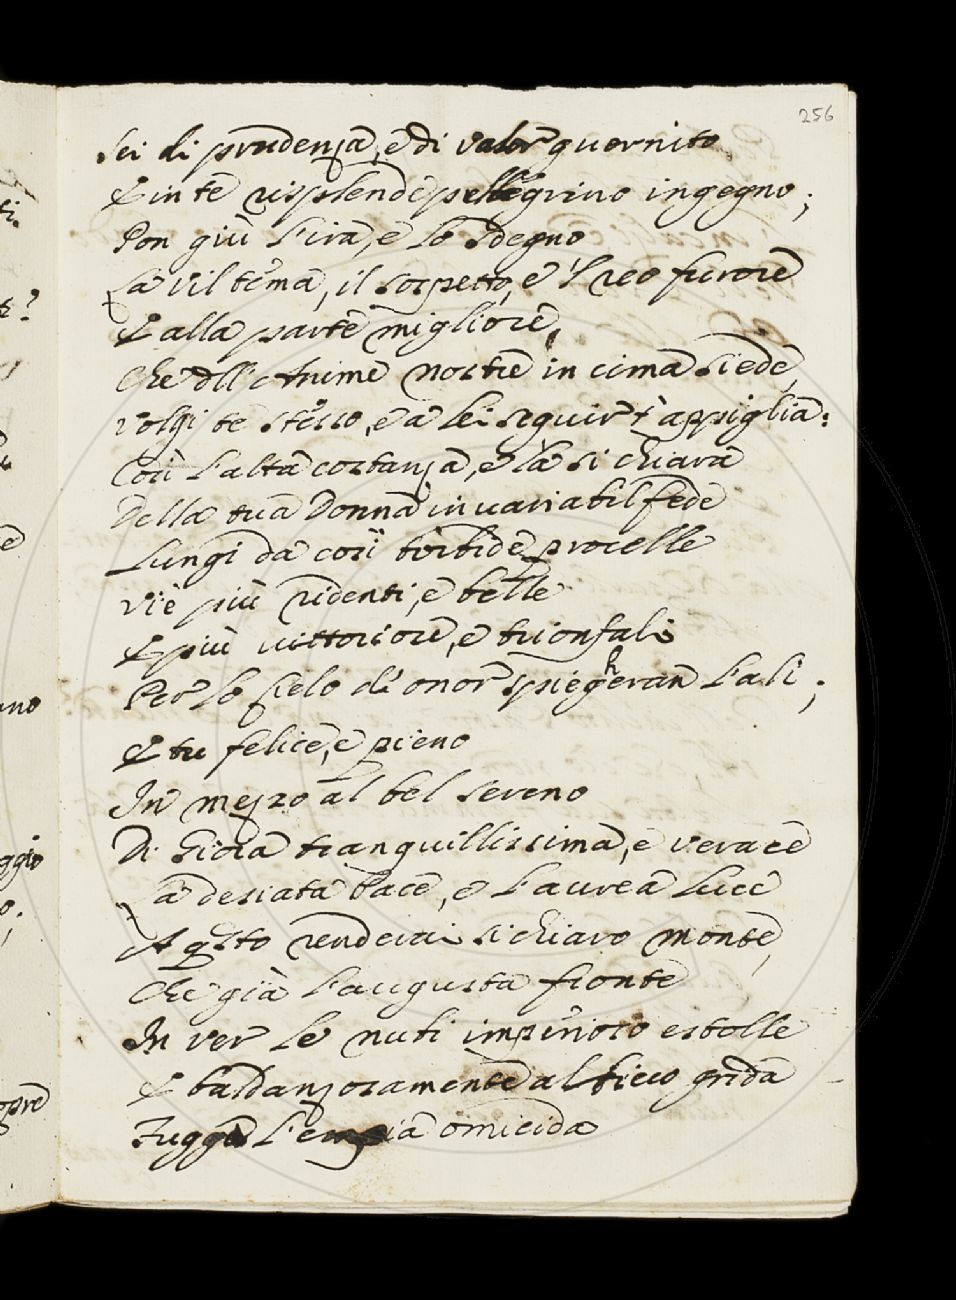 256
Sei di prudenza, e di valor guernito
E in te risplende pellegrino ingegno;
Pon giù l'ira, e lo sdegno
La vil tema, il sospetto, e 'l reo furore
E alla parte migliore,
Che dll'Anime nostre in cima siede,
volgi te stesso, e a lei seguir t'appiglia:
Così l'alta costanza, e la si chiara
Della tua Donna invariabil fede
Lungi da così torbide procelle
Vie più ridenti, e belle
E più vittoriose, e trionfali
Per lo Cielo d'onor spiegheran l'ali;
E tu felice, e pieno
In mezzo al bel sereno
Di Gioia tranquillissima, e verace
La desiata Pace, e l'aurea Luce
A qsto renderai sì chiaro monte,
Che già l'augusta fronte
In ver le nubi imperioso estolle
E baldanzosamente al bieco grida
Fugga l'empia omicida
ti.
?
ano
ggio
o.
opre